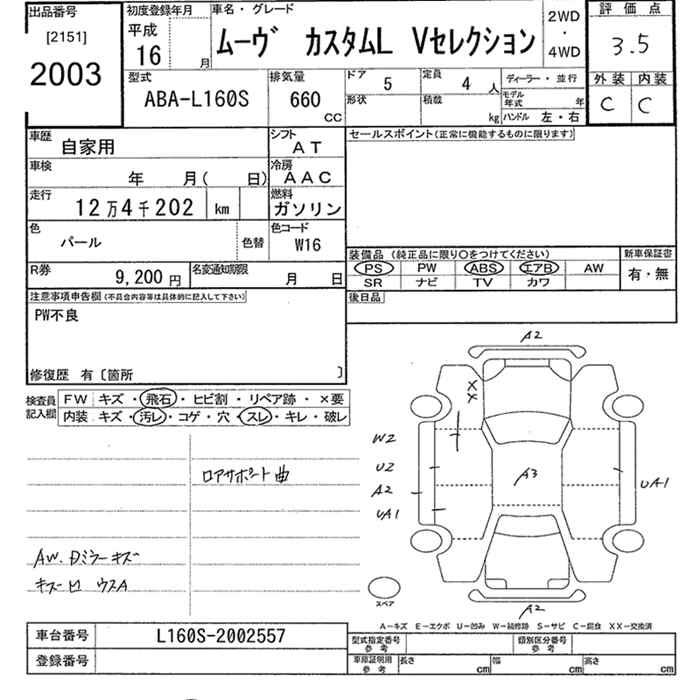 出品番号
[2151]
2003
初度登録年月
平成
16 月
車名・グレード
ムーヴ カスタムL Vセレクション
2WD
・
4WD
評価点
3.5
外装 内装
C C
型式
ABA-L160S
排気量
660
CC
ドア 5
定員 4 人
形状
積載 kg
ディーラー・並行
モデル年式 年
ハンドル 左・右
車歴 自家用
シフト AT
車検 年 月( 日)
冷房 AAC
走行 12万4千202 km
燃料 ガソリン
色 パール 色替
色コード W16
R券 9,200円
名変通知期限 月 日
セールスポイント(正常に機能するものに限ります)
装備品(純正品に限り○をつけてください)
新車保証書
PS PW ABS エアB AW
SR ナビ TV カワ
有・無
後日品
注意事項申告欄(不具合内容等は具体的に記入して下さい)
PW不良
修復歴 有〔箇所 〕
検査員
記入欄
FW キズ・飛石・ヒビ割・リペア跡・×要
内装 キズ・汚レ・コゲ・穴・スレ・キレ・破レ
ロアサポート曲
AW.Dミラーキズ
ウスA
A2
XX
W2
U2
A2
UA1
A3
UA1
A2
スペア
A－キズ E－エクボ U－凹み W－補修跡 S－サビ C－腐食 XX－交換済
車台番号 L160S-2002557
登録番号
型式指定番号
参考
類別区分番号
参考
車庫証明用
参考
長さ cm 幅 cm 高さ cm